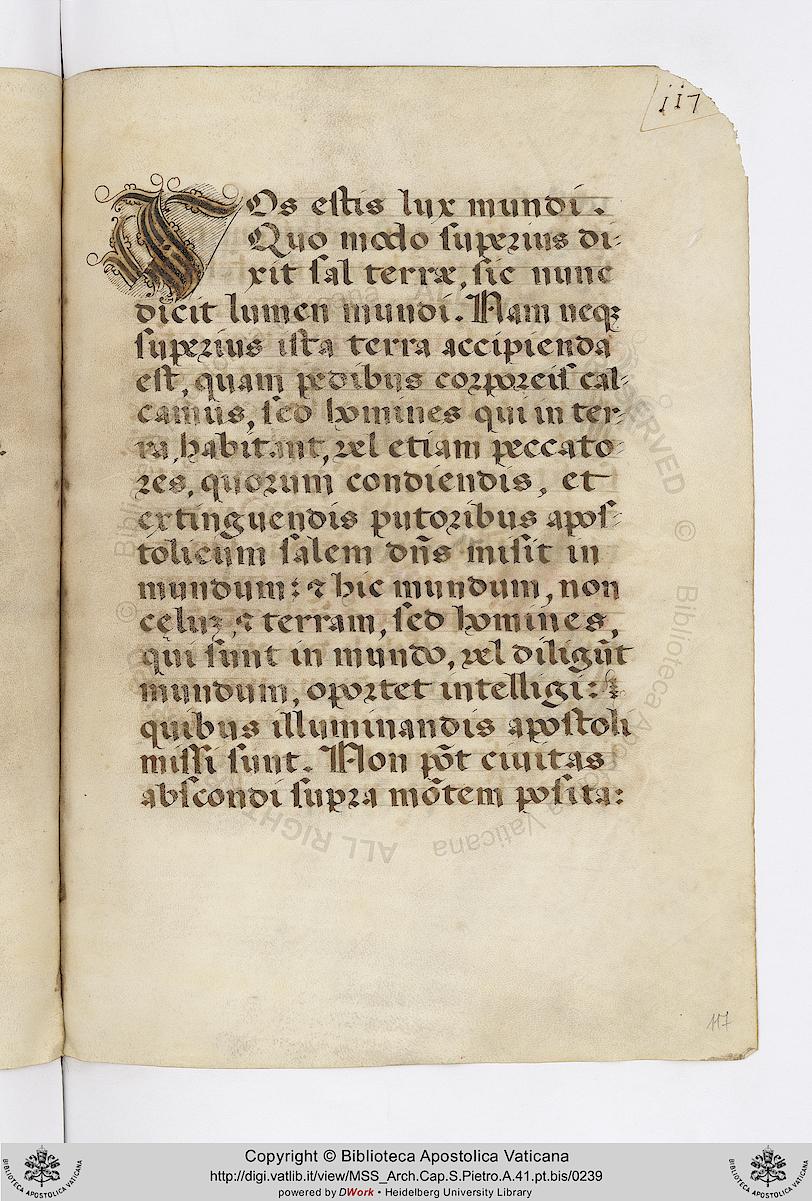 117
Vos estis lux mundi.
Quo modo superius di-
xit sal terræ, sic nunc
dicit lumen mundi. Nam neqꝫ
superius ista terra accipienda
est, quam pedibus corporeis cal-
camus, sed homines qui in ter-
ra habitant, vel etiam peccato-
res, quorum condiendis, et
extinguendis putoribus apos-
tolicum salem dn̄s misit in
mundum: ⁊ hic mundum, non
celuꝫ, ⁊ terram, sed homines,
qui sunt in mundo, vel diligūt
mundum, oportet intelligi:
quibus illuminandis apostoli
missi sunt. Non pōt civitas
abscondi supra mōtem posita:
117
Copyright © Biblioteca Apostolica Vaticana
http://digi.vatlib.it/view/MSS_Arch.Cap.S.Pietro.A.41.pt.bis/0239
powered by DWork • Heidelberg University Library